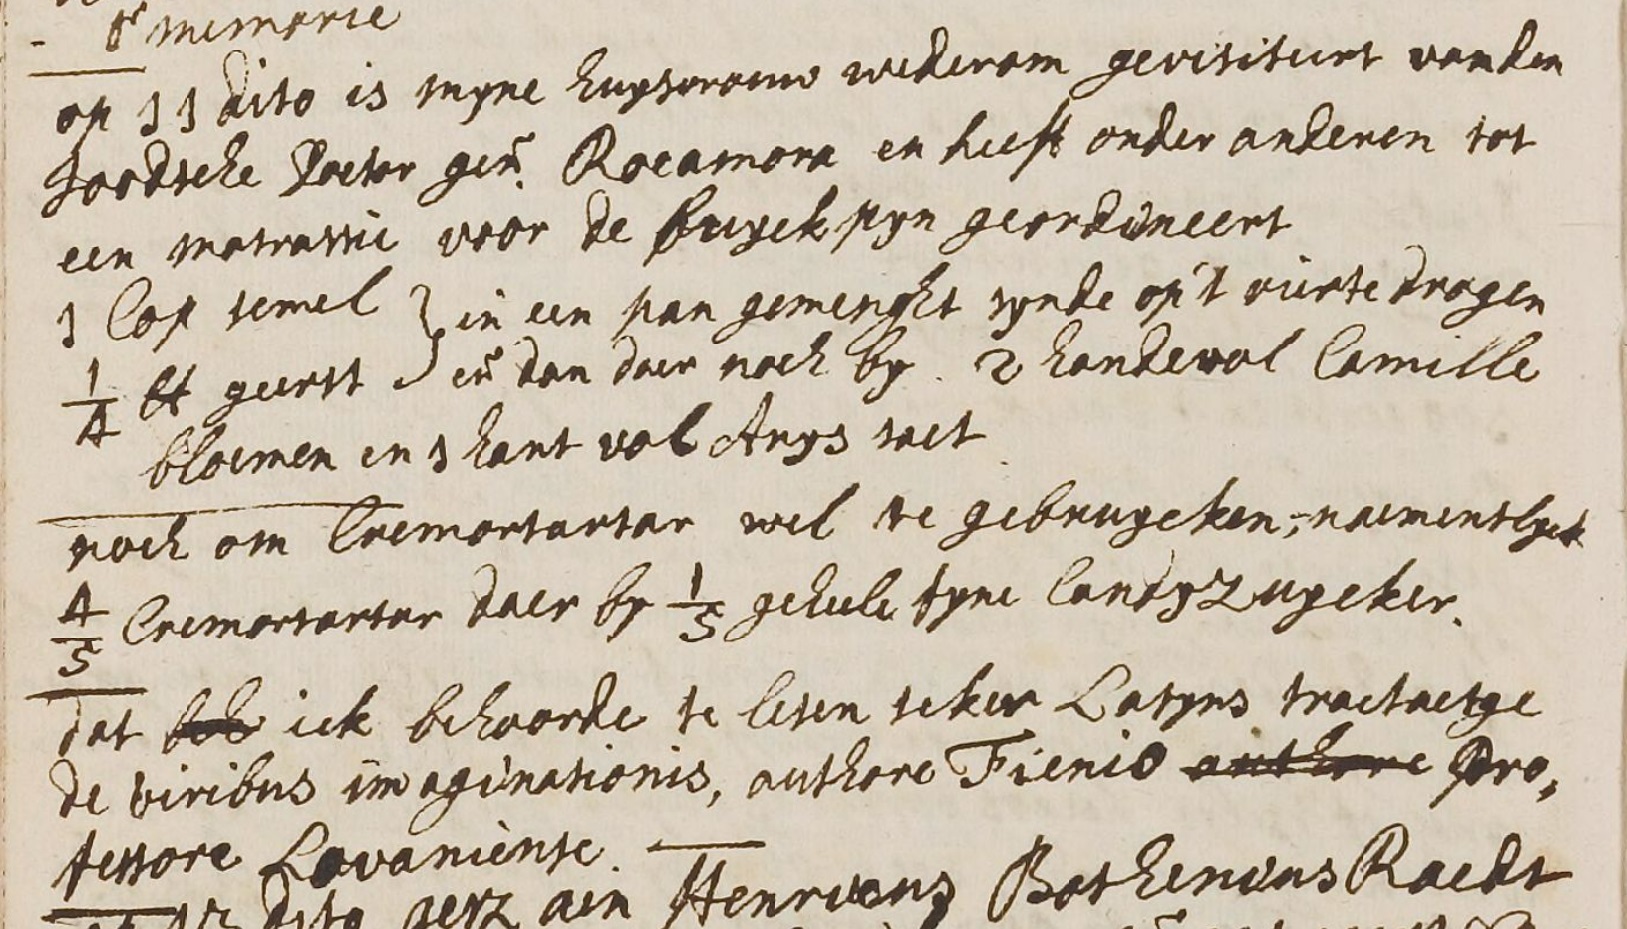 - pr memorie
op 11 dito is myne huysvrouw wederom gevisiteert vanden
Joodsche Doctor gen. Rocamora en heeft onder anderen tot
een matrassie voor de buyckpyn geordineert
1 Cop semel } in een pan gemenght synde op't vier te drogen
1/4 lb geerst } en dan daer noch by . 2 handevol Camille
bloemen en 1 hant vol Anys saet
noch om Cremortartar wel te gebruycken, naementlyck
4/5 Cremortartar daer by 1/5 geheele fyne Candyzuycker.
dat ick behoorde te lesen seker Latyns tractaetge
de viribus imaginationis, authore Fienio authore Pro,
fessore Lovaniense.
dito aen Henricus Bothenius Raedt